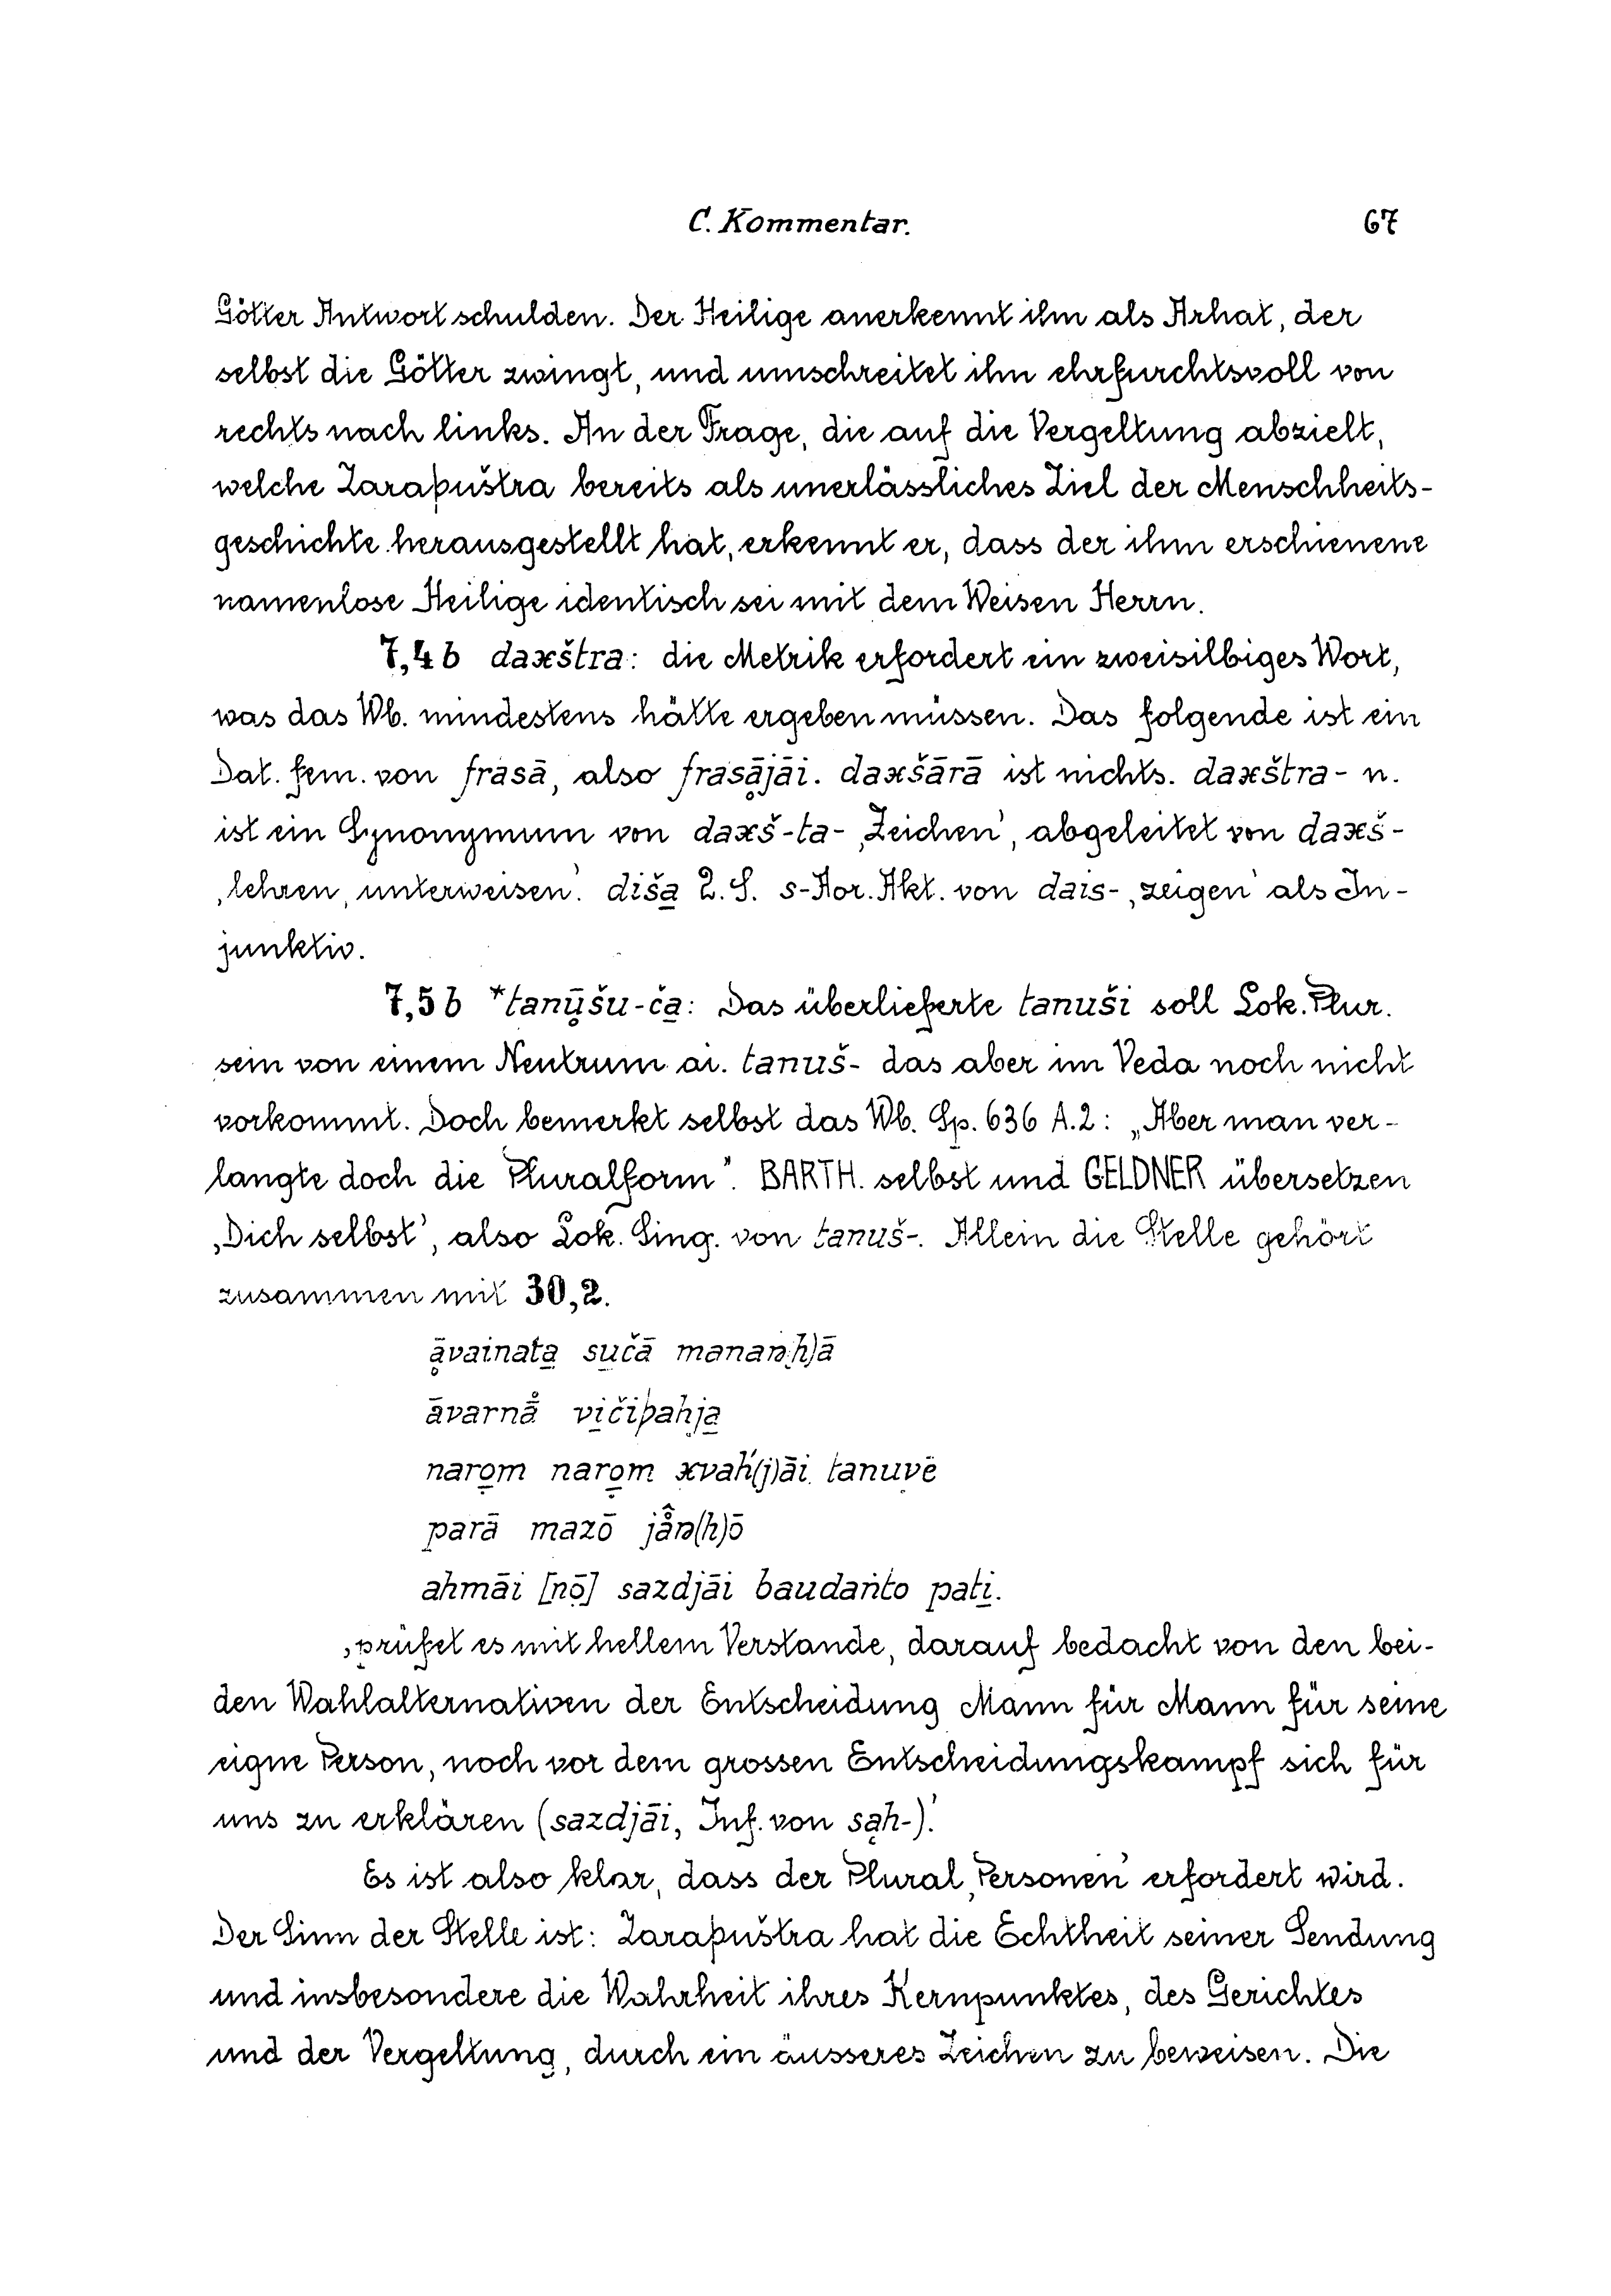 C. Kommentar. 67
Götter Antwort schulden. Der Heilige anerkennt ihn als Arhat, der
selbst die Götter zwingt, und umschreitet ihn ehrfurchtsvoll von
rechts nach links. An der Frage, die auf die Vergeltung abzielt,
welche Zaraþuštra bereits als unerlässliches Ziel der Menschheits-
geschichte herausgestellt hat, erkennt er, dass der ihm erschienene
namenlose Heilige identisch sei mit dem Weisen Herrn.
7,4 b daxštra: die Metrik erfordert ein zweisilbiges Wort,
was das Wb. mindestens hätte ergeben müssen. Das folgende ist ein
Dat. fem. von frasā, also frasḁ̄jāi. daxšārā ist nichts. daxštra- n.
ist ein Synonymum von daxš-ta- ‚Zeichen', abgeleitet von daxš-
‚lehren, unterweisen'. diša̱ 2. S. s-Aor. Akt. von dais- ‚zeigen' als In-
junktiv.
7,5 b *tanū̥šu-ča̱: Das überlieferte tanuši soll Lok. Plur.
sein von einem Neutrum ai. tanuš- das aber im Veda noch nicht
vorkommt. Doch bemerkt selbst das Wb. Sp. 636 A.2: „Aber man ver-
langte doch die Pluralform". BARTH. selbst und GELDNER übersetzen
‚Dich selbst', also Lok. Sing. von tanuš-. Allein die Stelle gehört
zusammen mit 30,2.
ḁ̄vainata̱ su̱čā manaṅ(h)ā
āvarnā̊ vi̱čiþahja̱
naro̱m naro̱m xvah́(j)āi tanuvē
parā mazō jā̊ṅ(h)ō
ahmāi [nō̱] sazdjāi baudaṅto pati̱.
‚prüfet es mit hellem Verstande, darauf bedacht von den bei-
den Wahlalternativen der Entscheidung Mann für Mann für seine
eigne Person, noch vor dem grossen Entscheidungskampf sich für
uns zu erklären (sazdjāi, Inf. von sąh-).'
Es ist also klar, dass der Plural ‚Personen' erfordert wird.
Der Sinn der Stelle ist: Zaraþuštra hat die Echtheit seiner Sendung
und insbesondere die Wahrheit ihres Kernpunktes, des Gerichtes
und der Vergeltung, durch ein äusseres Zeichen zu beweisen. Die